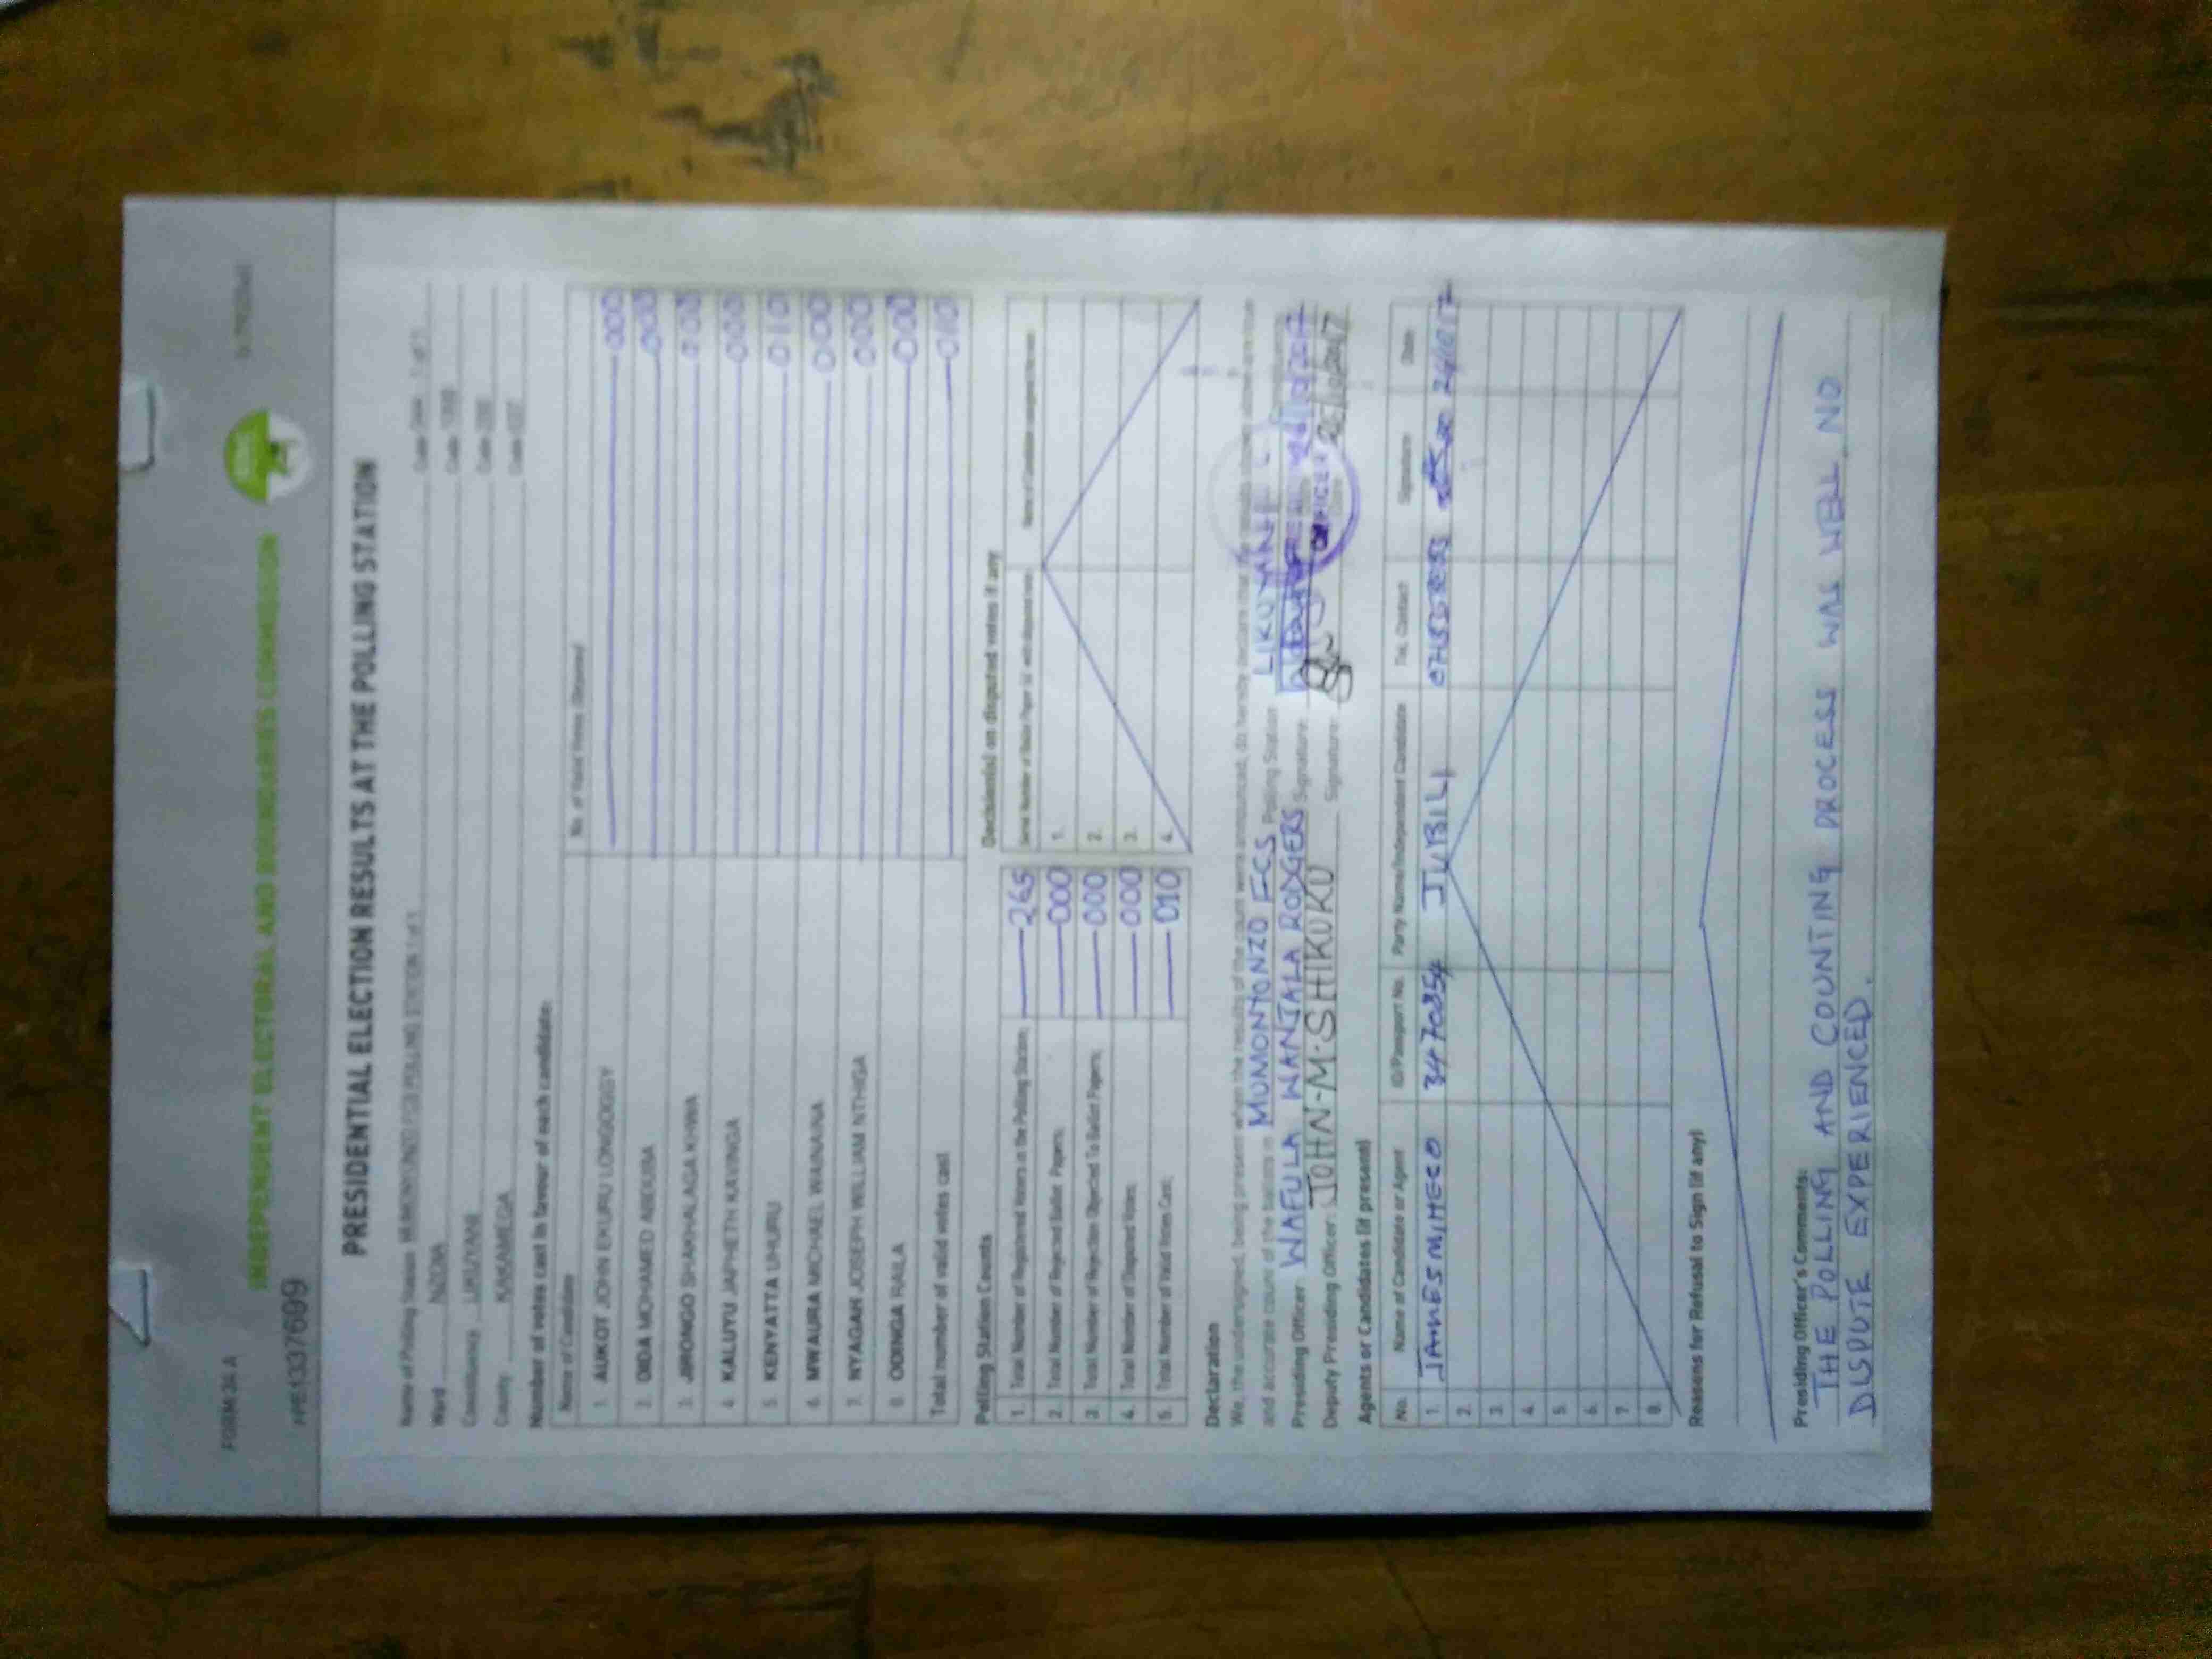 FORM 34 A
INDEPENDENT ELECTORAL AND BOUNDARIES COMMISSION
PRESIDENTIAL ELECTION RESULTS AT THE POLLING STATION
Name of Polling Station
Ward NZOIA
Constituency LIKUYANI
County KAKAMEGA
Number of votes cast in favour of each candidate:
Name of Candidate No. of Valid Votes Obtained
1. AUKOT JOHN EKURU LONGOGGY 000
2. DIDA MOHAMED ABDUBA 000
3. JIRONGO SHAKHALAGA KHWA 000
4. KALUYU JAPHETH KAVINGA 000
5. KENYATTA UHURU 010
6. MWAURA MICHAEL WAINAINA 000
7. NYAGAH JOSEPH WILLIAM NTHIGA 000
8. ODINGA RAILA 000
Total number of valid votes cast 010
Polling Station Counts
1. Total Number of Registered Voters in the Polling Station: 265
2. Total Number of Rejected Ballot Papers: 000
3. Total Number of Rejection Objected To Ballot Papers: 000
4. Total Number of Disputed Votes: 000
5. Total Number of Valid Votes Cast: 010
Decision(s) on disputed votes if any
1.
2.
3.
4.
Declaration
We, the undersigned, being present when the results of the count were announced, do hereby declare that the results shown above are true
and accurate count of the ballots in MUMONYONZO FCS Polling Station LIKUYANI
Presiding Officer: WAFULA WANJALA RODGERS Signature:
Deputy Presiding Officer: JOHN-M-SHIKUKU Signature:
Agents or Candidates (if present)
No. Name of Candidate or Agent ID/Passport No. Party Name/Independent Candidate Tel. Contact Signature Date
1. JAMES JUBILI
2.
3.
4.
5.
6.
7.
8.
Reasons for Refusal to Sign (if any)
Presiding Officer's Comments:
THE POLLING AND COUNTING PROCESS WAS WELL NO
DISPUTE EXPERIENCED.